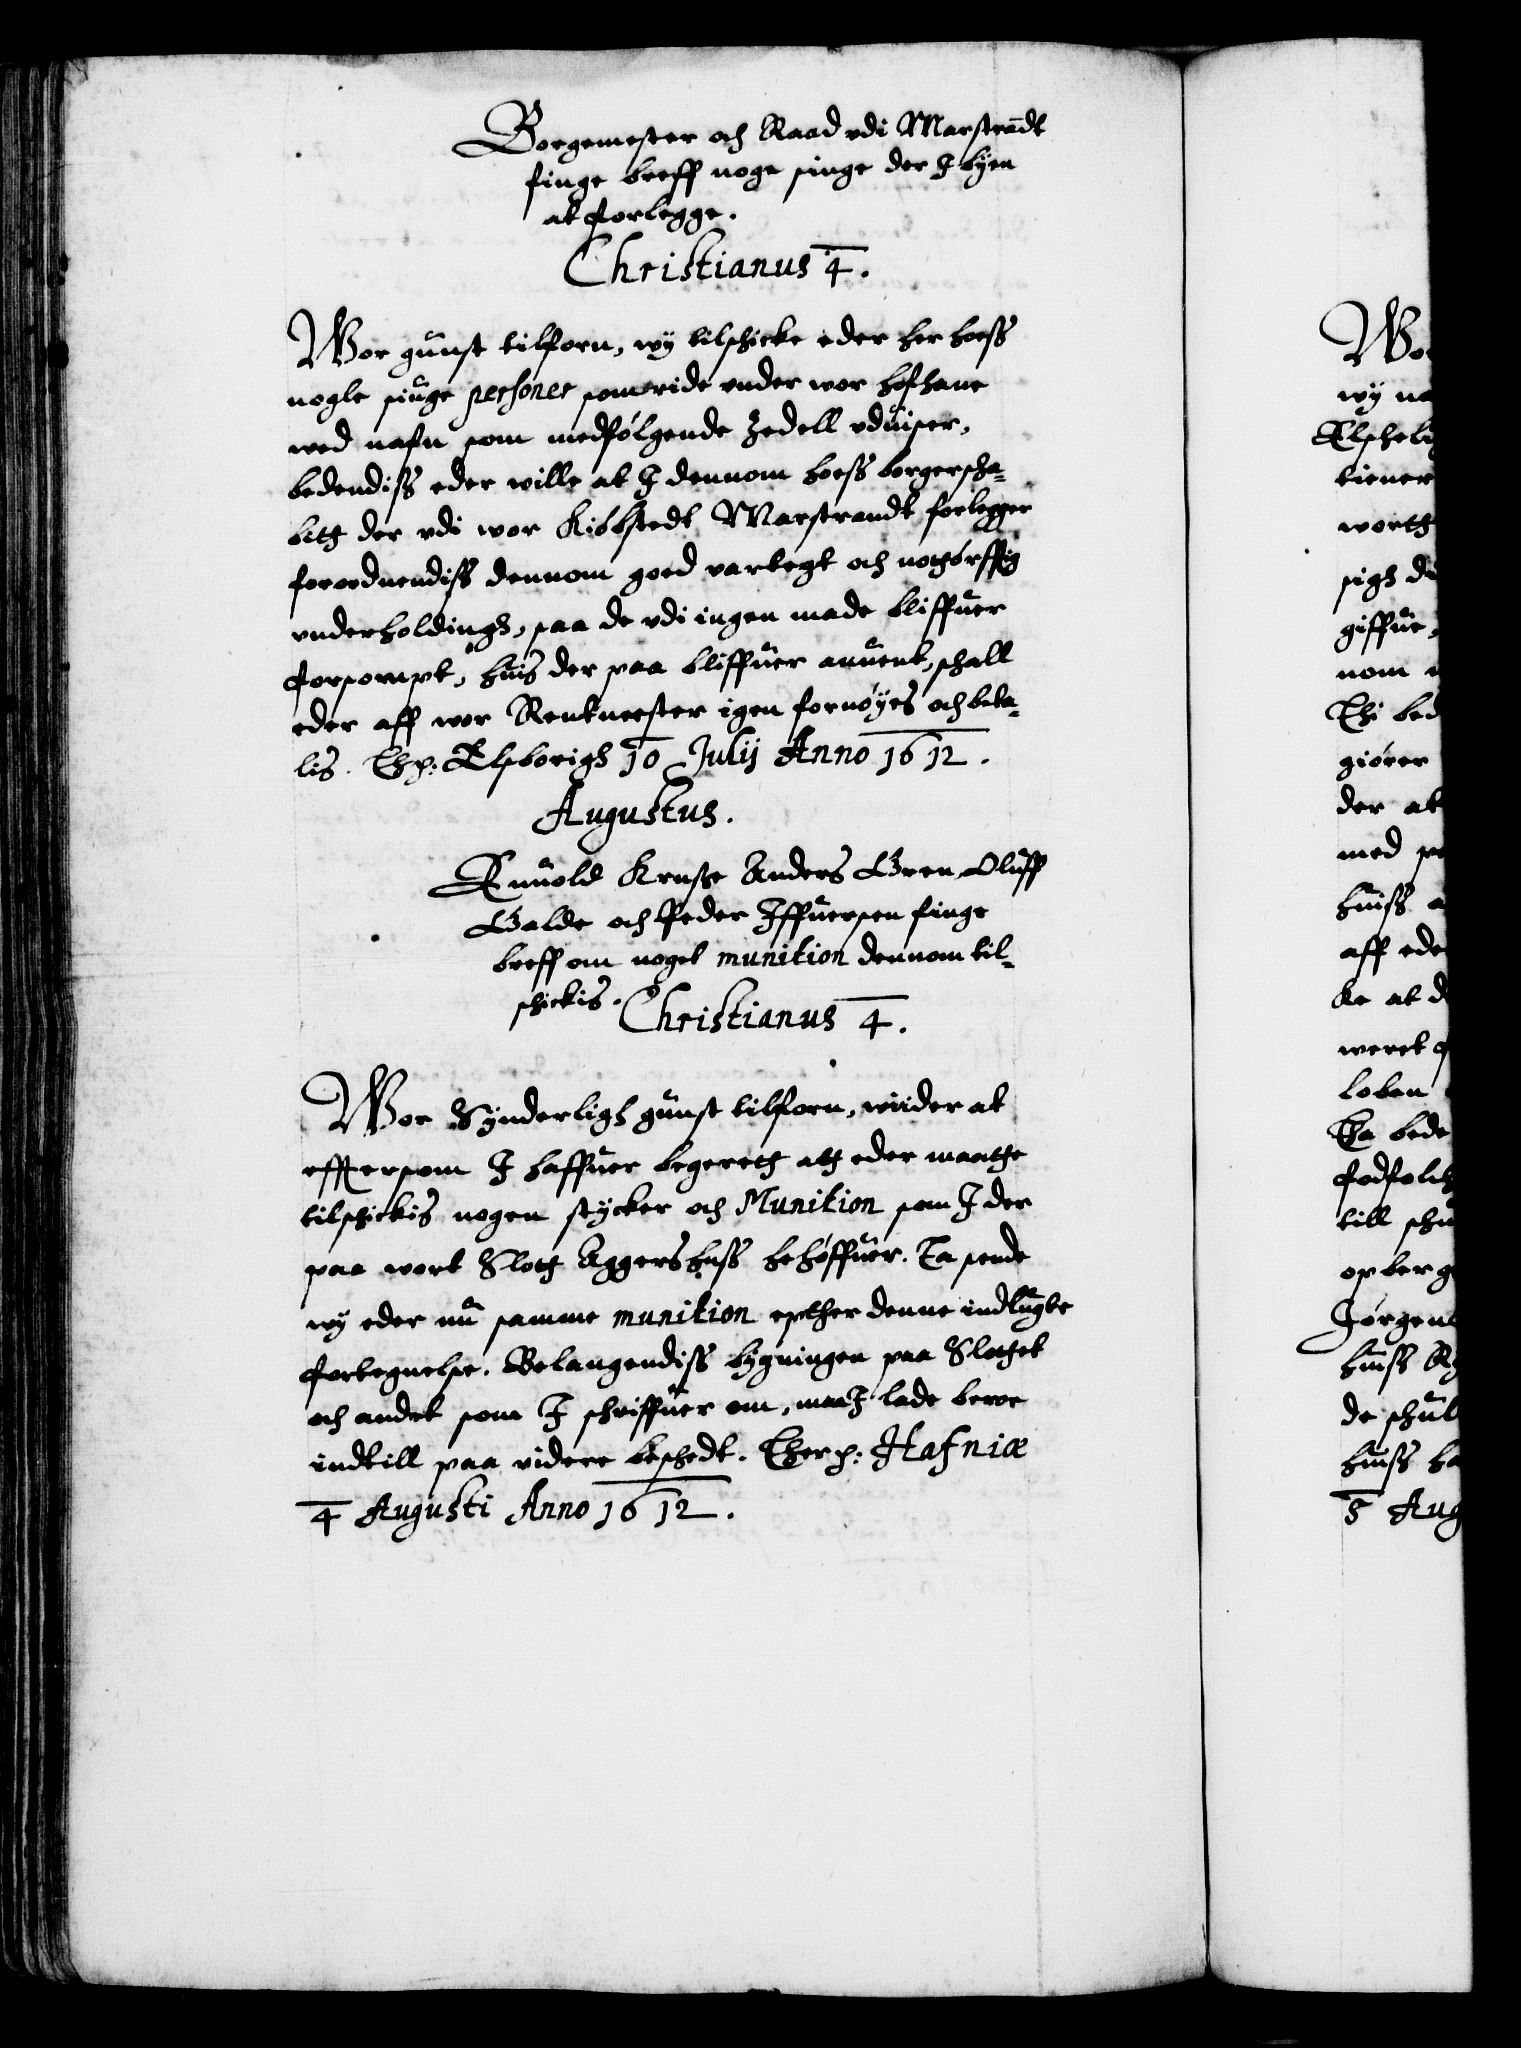 Borgemester och Raad vdi Marstrãdt
finge breff noge siuge der I byen
at forlegge.
Christianus 4.
Wor gunst tilforn, wy tilschicke eder her hoess
nogle siuge personer som ride vnder wor hoffhane
wed nafn som medfølgende Zedell vduiser,
bedendiss eder wille at I dennom hoess borgerscha-
bith der vdi wor Kiøbstedt Marstrandt forlegger
forordnendiss dennom goed vartegt och nothørfftig
vnderholdingh, saa de vdi ingen made bliffuer
forsompt, huis der paa bliffuer anuent, schall
eder aff wor Rentmester igen fornøyes och beta-
lis. Ex: Elsborigh 10 Julij Anno 1612.
Augustus.
Enuold Kruse Anders Gren, Oluff
Galde och Peder Iffuersen finge
breff om noget munition dennom til-
schickis.
Christianus 4.
Wor Synderligh gunst tilforn, wiider at
efftersom I haffuer begereth ath eder maatthe
tilschickis nogen stycker och Munition som I der
paa wort Sloth Aggershuss behøffuer. Da sende
wy eder nu samme munition epther denne indlugte
fortegnelse. Belangendiss bygningen paa Slothet
och andet som I schriffuer om, maa I lade beroe
indtill paa videre beschedt. Exp: Hafniæ
4 Augusti Anno 1612.
Wor
wy
tiener
worth
sigh
giffue,
nom
Thi bed
giører
der at
med
huiss
aff eder
ke at
weret
loben
Da bede
fodfolch
till
Jørgen
huiss
de schul
huiss
8 Aug